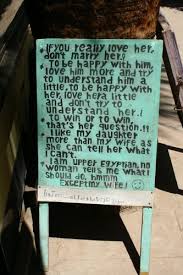 If you really love her,
don't marry her.
To be happy with him,
love him more and try
to understand him a
little, to be happy with
her, love her a little
and don't try to
understand her.
to win or to win,
that's her question.!!
I like my daughter
more than my wife as
she can tell her what
I can't.
I am upper egyptian, no
woman tells me what I
should do, hmmm
Except my wife!